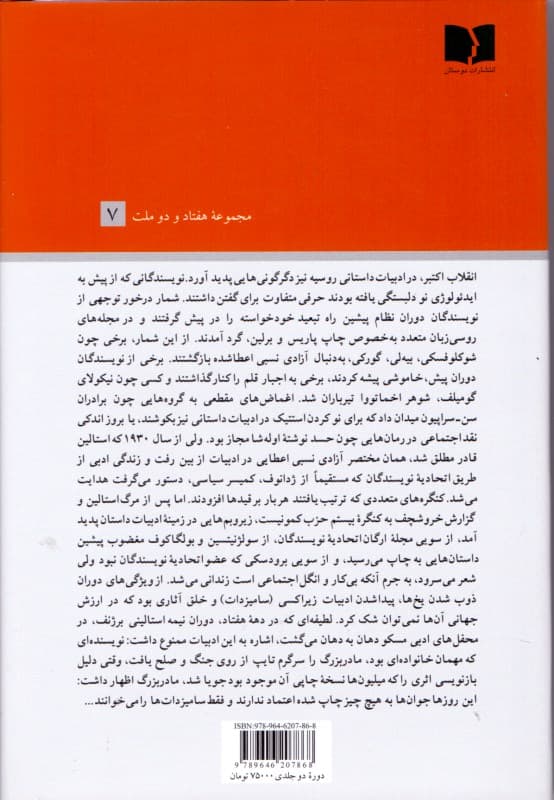 انتشارات دوستان
مجموعهٔ هفتاد و دو ملت ۷
انقلاب اکتبر، در ادبیات داستانی روسیه نیز دگرگونی‌هایی پدید آورد. نویسندگانی که از پیش به
ایدئولوژی نو دلبستگی یافته بودند حرفی متفاوت برای گفتن داشتند. شمار درخور توجهی از
نویسندگان دوران نظام پیشین راه تبعید خودخواسته را در پیش گرفتند و در مجله‌های
روسی‌زبان متعدد به‌خصوص چاپ پاریس و برلین، گرد آمدند. از این شمار، برخی چون
شوکلوفسکی، بیه‌لی، گورکی، به‌دنبال آزادی نسبی اعطا شده بازگشتند. برخی از نویسندگان
دوران پیش، خاموشی پیشه کردند، برخی به اجبار قلم را کنار گذاشتند و کسی چون نیکولای
گومیلف، شوهر اخماتووا تیرباران شد. اغماض‌های مقطعی به گروه‌هایی چون برادران
سن-سراپیون میدان داد که برای نو کردن استتیک در ادبیات داستانی نیز بکوشند، یا بروز اندکی
نقد اجتماعی در رمان‌هایی چون حسد نوشتهٔ اوله‌شا مجاز بود. ولی از سال ۱۹۳۰ که استالین
قادر مطلق شد، همان مختصر آزادی نسبی اعطایی در ادبیات از بین رفت و زندگی ادبی از
طریق اتحادیهٔ نویسندگان که مستقیماً از ژدانوف، کمیسر سیاسی، دستور می‌گرفت هدایت
می‌شد. کنگره‌های متعددی که ترتیب یافتند هربار بر قیدها افزودند. اما پس از مرگ استالین و
گزارش خروشچف به کنگرهٔ بیستم حزب کمونیست، زیروبم‌هایی در زمینهٔ ادبیات داستان پدید
آمد، از سویی مجلهٔ ارگان اتحادیهٔ نویسندگان، از سولژنیتسین و بولگاکوف مغضوب پیشین
داستان‌هایی به چاپ می‌رسید، و از سویی برودسکی که عضو اتحادیهٔ نویسندگان نبود ولی
شعر می‌سرود، به جرم آنکه بی‌کار و انگل اجتماعی است زندانی می‌شد. از ویژگی‌های دوران
ذوب شدن یخ‌ها، پیدا شدن ادبیات زیراکسی (سامیزدات) و خلق آثاری بود که در ارزش
جهانی آن‌ها نمی‌توان شک کرد. لطیفه‌ای که در دههٔ هفتاد، دوران نیمه استالینی برژنف، در
محفل‌های ادبی مسکو دهان به دهان می‌گشت، اشاره به این ادبیات ممنوع داشت: نویسنده‌ای
که مهمان خانواده‌ای بود، مادربزرگ را سرگرم تایپ از روی جنگ و صلح یافت، وقتی دلیل
بازنویسی اثری را که میلیون‌ها نسخهٔ چاپی آن موجود بود جویا شد، مادربزرگ اظهار داشت:
این روزها جوان‌ها به هیچ چیز چاپ شده اعتماد ندارند و فقط سامیزدات‌ها را می‌خوانند...
ISBN:978-964-6207-86-8
9 789646 207868
دورهٔ دو جلدی ۷۵۰۰۰ تومان